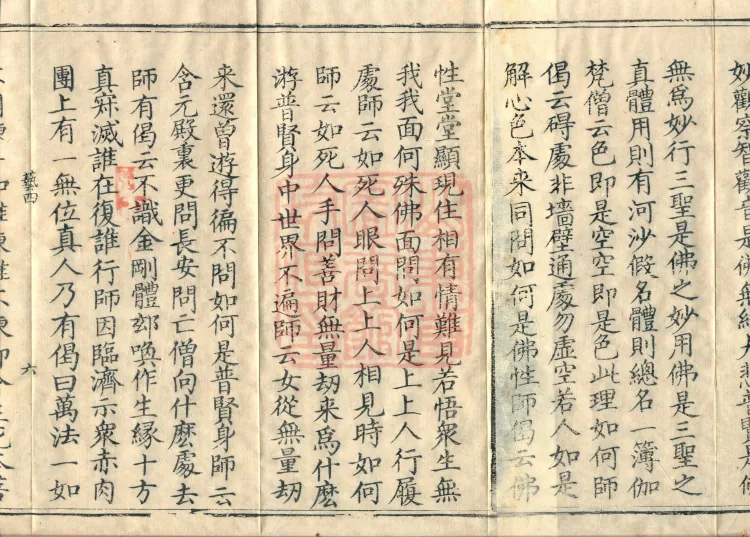 妙觀察智觀音是佛無緣大悲普賢是佛
無爲妙行三聖是佛之妙用佛是三聖之
真體用則有河沙假名體則總名一簿伽
梵僧云色即是空空即是色此理如何師
偈云碍處非墻壁通處勿虛空若人如是
解心色夲来同問如何是佛性師偈云佛
性堂堂顯現住相有情難見若悟衆生無
我我面何殊佛面問如何是上上人行履
處師云如死人眼問上上人相見時如何
師云如死人手問善財無量刼来爲什麽
游普賢身中世界不遍師云女從無量刼
来還曽遊得徧不問如何是普賢身師云
含元殿裏更問長安問亡僧向什麽處去
師有偈云不識金剛體郄喚作生緣十方
真寂滅誰在復誰行師因臨濟示衆赤肉
團上有一無位真人乃有偈曰萬法一如
六